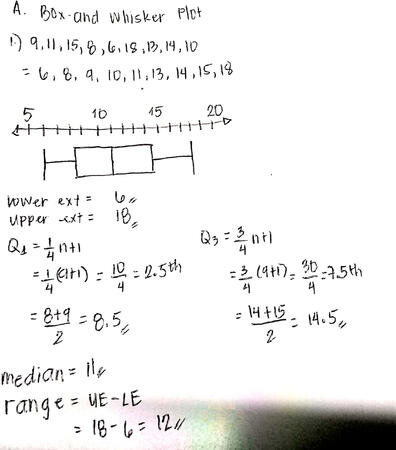 A. Box-and Whisker Plot
1.) 9, 11, 15, 8, 6, 18, 13, 14, 10
= 6, 8, 9, 10, 11, 13, 14, 15, 18
5 10 15 20
lower ext = 6
upper ext = 18
Q1 = 1/4 n+1
= 1/4 (9+1) = 10/4 = 2.5th
= 8+9/2 = 8.5
Q3 = 3/4 n+1
= 3/4 (9+1) = 30/4 = 7.5th
= 14+15/2 = 14.5
median = 11
range = UE-LE
= 18-6 = 12